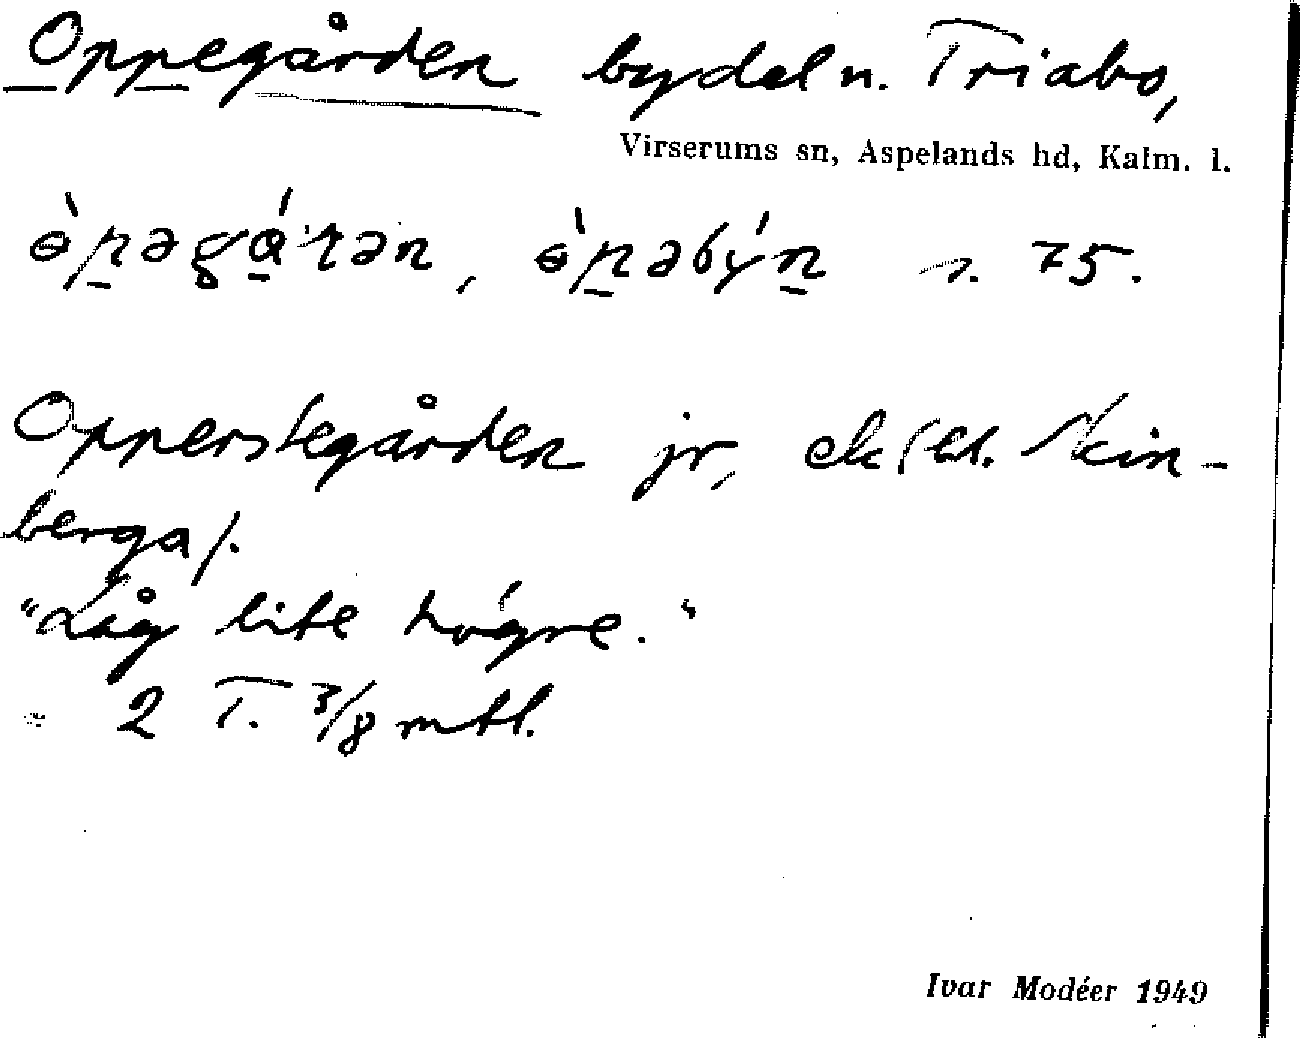 Oppegården bydel n. Triabo,
Virserums sn, Aspelands hd, Kalm. l.
ɵ̀pəgɑ́ꞃən, ɵ̀pəbýn s. 75.
Opperstegården jr, ekskl. Skin-
berga/.
"Låg lite högre."
= 2 T. 3/8 mtl.
Ivar Modéer 1949